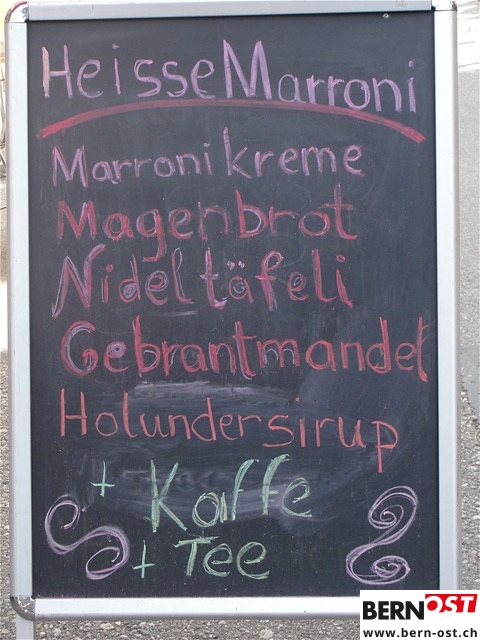 Heisse Marroni
Marronikreme
Magenbrot
Nideltäfeli
Gebrantmandel
Holundersirup
+ Kaffe
+ Tee
BERNOST
www.bern-ost.ch